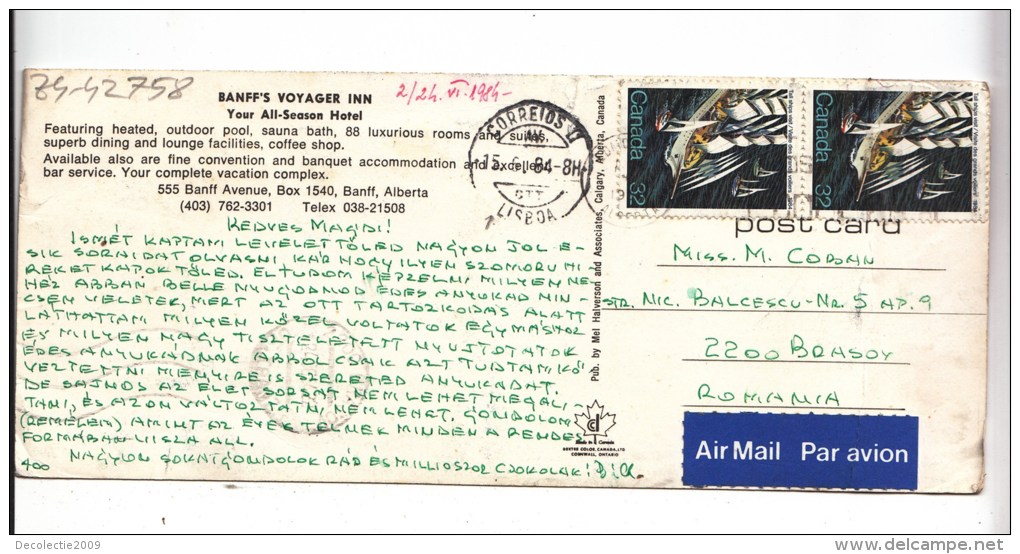 74-42758
2/24. VI. 1984-
BANFF'S VOYAGER INN
Your All-Season Hotel
Featuring heated, outdoor pool, sauna bath, 88 luxurious rooms and suites,
superb dining and lounge facilities, coffee shop.
Available also are fine convention and banquet accommodation and excellent
bar service. Your complete vacation complex.
555 Banff Avenue, Box 1540, Banff, Alberta
(403) 762-3301 Telex 038-21508
CORREIOS
15.6.84-8H
CTT
LISBOA
KEDVES MAGDI!
ISMÉT KAPTAM LEVELET TŐLED NAGYON JOL E-
SIK SORAIDAT OLVASNI KÁR HOGY ILYEN SZOMORU HI-
REKET KAPOK TŐLED. EL TUDOM KÉPZELNI MILYEN NE-
HÉZ ABBAN BELLE NYUGODNOD ÉDES ANYUKAD NIN-
CSEN VELETEK, MERT AZ OTT TARTOZKODAS ALATT
LATHATTAM MILYEN KÖZEL VOLTATOK EGYMÁSHOZ
ÉS MILYEN NAGY TISZTELETETT NYUJTOTATOK
ÉDES ANYUKADNAK ABBOL CSAK AZT TUDTAM KÖ-
VEZTETTNI MENYIRE IS SZERETED ANYUKADAT.
DE SAJNOS AZ ÉLET SORSÁT NEM LEHET MEGÁLI-
TANI, ÉS AZON VÁLTOZTATNI NEM LEHET. GONDOLOM
(REMÉLEM) AMINT AZ ÉVEK TELNEK MINDEN A RENDES
FORMÁBAN VISZA ALL.
NAGYON SOKAT GONDOLOK RÁD ÉS MILLIOSZOR CSOKOLAK!
400
Pub. by Mel Halverson and Associates, Calgary, Alberta, Canada
Made in Canada
CORNWALL, ONTARIO
Canada 32
Canada 32
post card
MISS. M. COBAN
STR. NIC. BALCESCU-NR. 5 AP. 9
2200 BRASOV
ROMANIA
Air Mail Par avion
Decolectie2009
www.delcampe.net